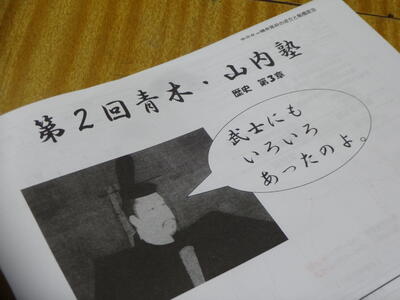 第2回青木・山内塾
歴史 第3章
武士にも
いろいろ
あったのよ。